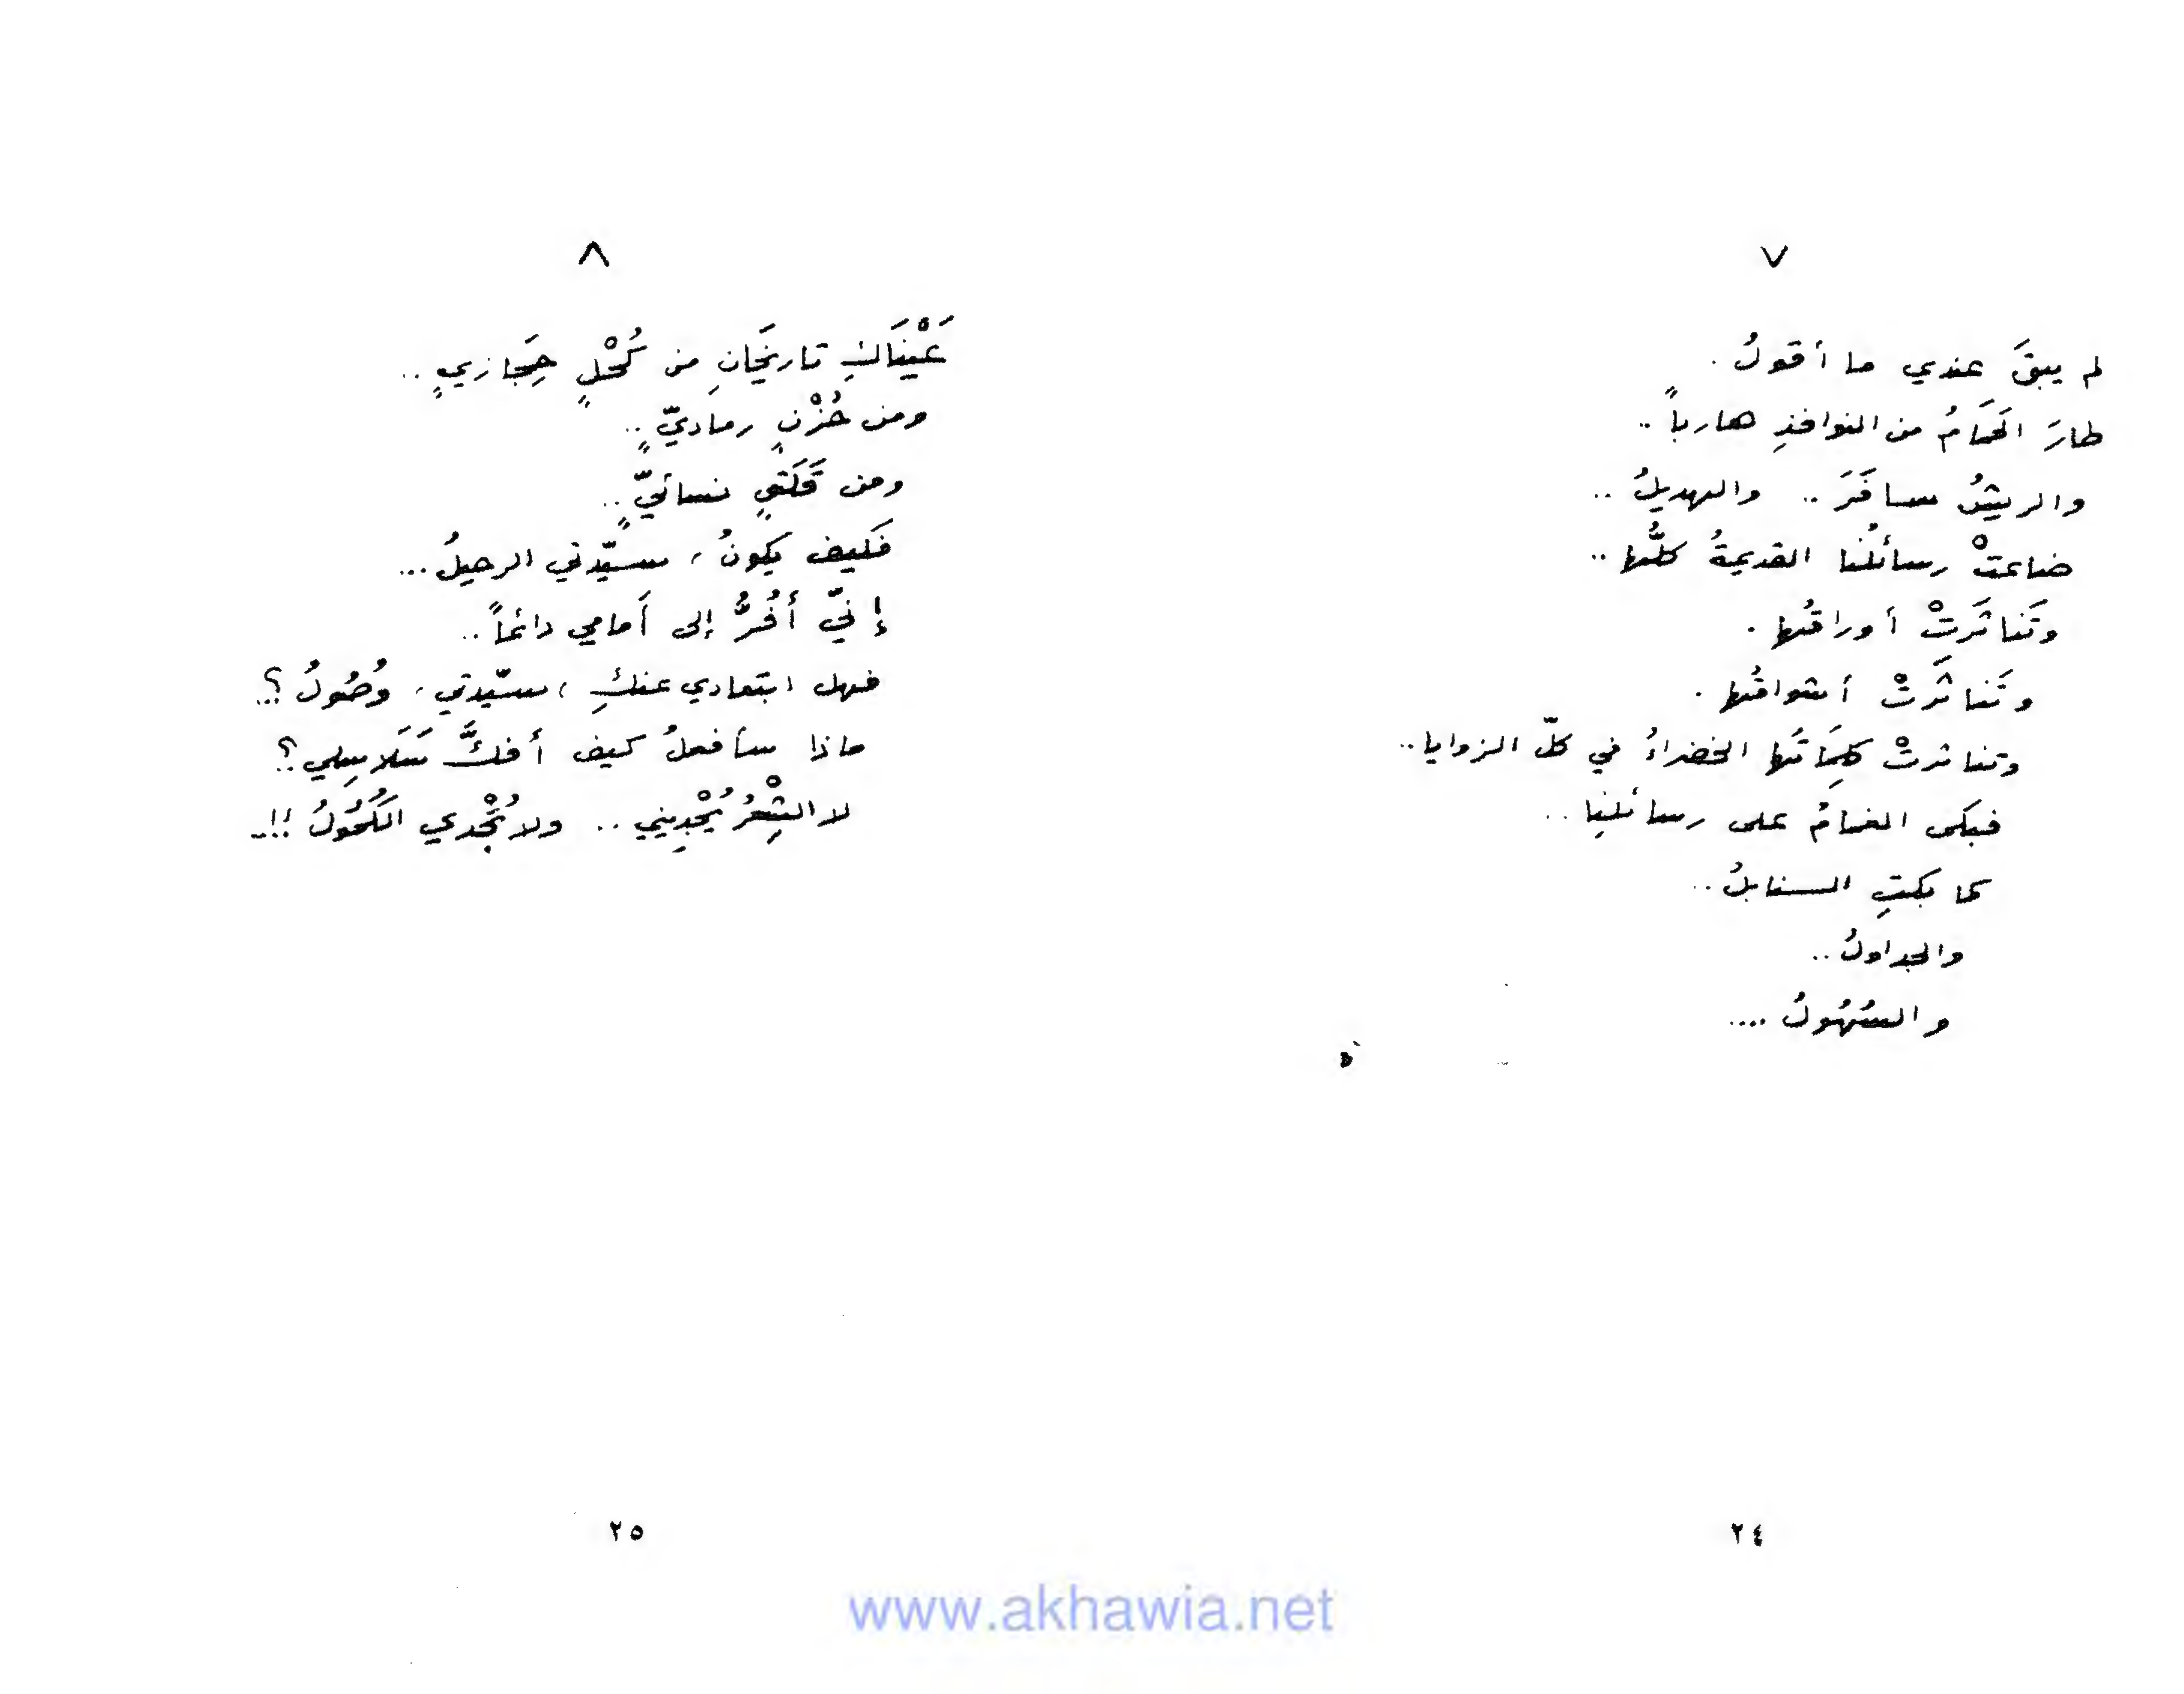 ٧
لم يبقَ عندي ما أقولُ .
طارَ الحَمَامُ من النوافذِ هارباً ..
والريشُ سافَرَ .. والهديلُ ..
ضاعتْ رسائلُنا القديمةُ كلُّها ..
وتَناثَرَتْ أوراقُها .
وتَناثَرَتْ أشواقُها .
وتناثرتْ كلِمَاتُها الخضراءُ في كلّ الزوايا ..
فبكى الغمامُ على رسائلنِا ..
كما بكتِ السنابلُ ..
والجداولُ ..
والسُهُولُ ....
٢٤
٨
عَيْنَاكِ تاريخَانِ من كُحْلٍ حِجَازيٍ ..
ومن حُزْنٍ رماديٍّ ..
ومن قَلَقٍ نسائيٍّ ..
فَكيف يكونُ ، سيّدتي الرحيلُ ...
إنّي أَفُرُّ إلى أَمامي دائماً ..
فهل ابتعادي عنكِ ، سيّدتي ، وُصُولُ ؟ ...
ماذا سأفعلُ كيف أفكَّ سَلَاسِلي ؟ ..
لا الشِعْرُ يُجْدِيني .. ولا تُجْدي الكُحُولُ !! ..
٢٥
www.akhawia.net